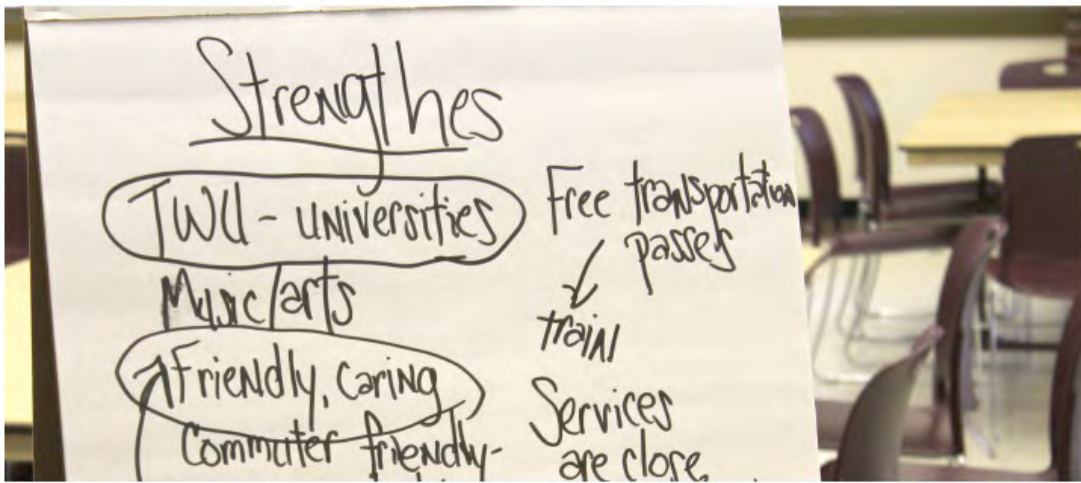 Strengthes
TWU - universities
Music/arts
Friendly, caring
Commuter friendly-
Free transportation
passes
train
Services
are close